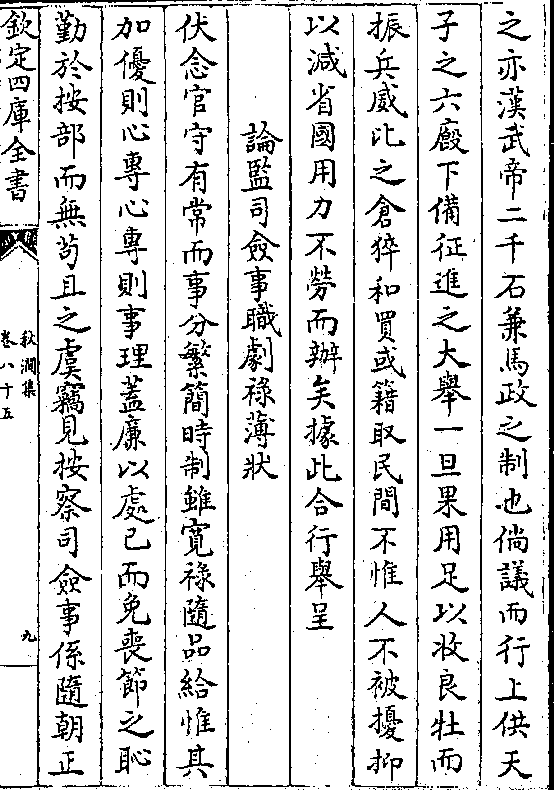 之亦漢武帝二千石兼馬政之制也倘議而行上供天
子之六廄下備征進之大舉一旦果用足以收良牡而
振兵威比之倉猝和買或籍取民間不惟人不被擾抑
以減省國用力不勞而辦矣據此合行舉呈
論監司僉事職劇祿薄狀
伏念官守有常而事分繁簡時制雖寬祿隨品給惟其
加優則心專心專則事理蓋廉以處己而免喪節之恥
勤於按部而無苟且之虞竊見按察司僉事係隨朝正
欽定四庫全書
秋澗集
卷八十五
九